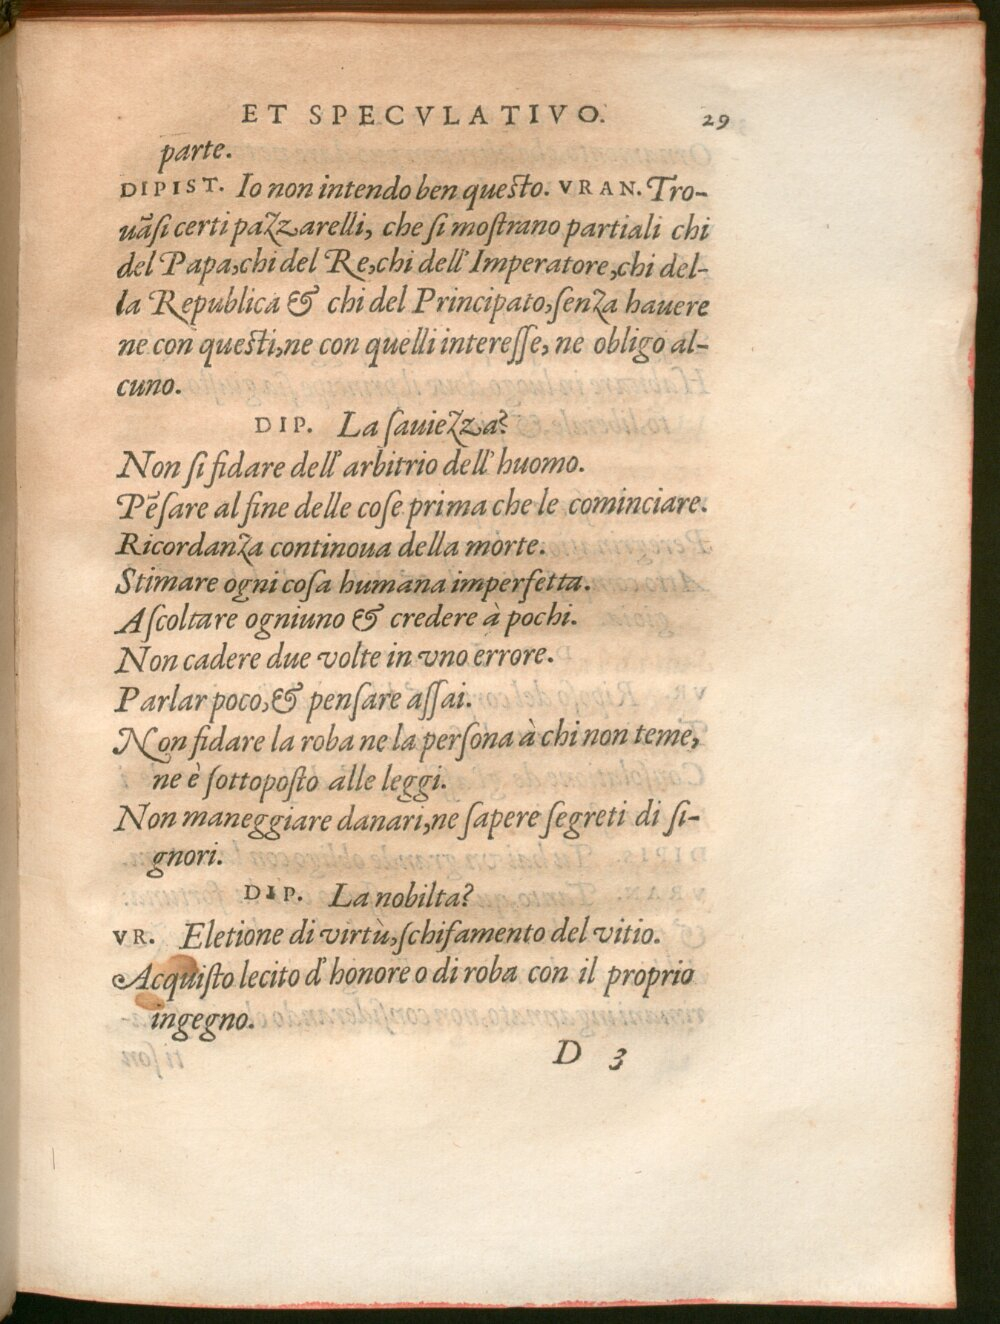 ET SPECVLATIVO. 29
parte.
DIPIST. Io non intendo ben questo. VRAN. Tro-
uãsi certi pazzarelli, che si mostrano partiali chi
del Papa,chi del Re,chi dell'Imperatore,chi del-
la Republica & chi del Principato,senza hauere
ne con questi,ne con quelli interesse, ne obligo al-
cuno.
DIP. La sauiezza?
Non si fidare dell'arbitrio dell'huomo.
Pẽsare al fine delle cose prima che le cominciare.
Ricordanza continoua della morte.
Stimare ogni cosa humana imperfetta.
Ascoltare ogniuno & credere à pochi.
Non cadere due volte in vno errore.
Parlar poco,& pensare assai.
Non fidare la roba ne la persona à chi non teme,
ne è sottoposto alle leggi.
Non maneggiare danari,ne sapere segreti di si-
gnori.
DIP. La nobilta?
VR. Eletione di virtù,schifamento del vitio.
Acquisto lecito d'honore o di roba con il proprio
ingegno.
D 3